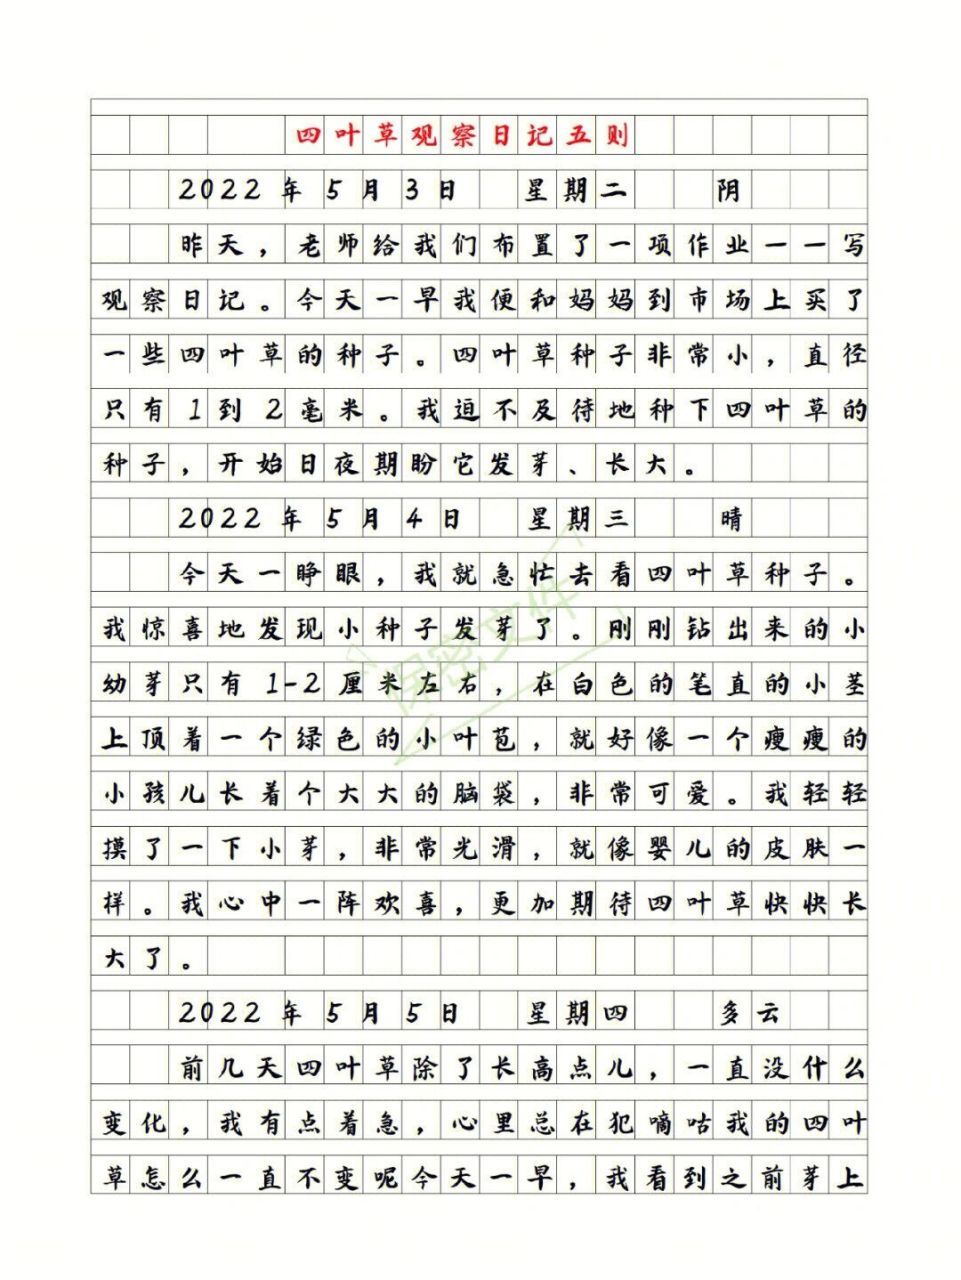 四叶草观察日记五则
2022年5月3日 星期二 阴
昨天，老师给我们布置了一项作业一一写
观察日记。今天一早我便和妈妈到市场上买了
一些四叶草的种子。四叶草种子非常小，直径
只有1到2毫米。我迫不及待地种下四叶草的
种子，开始日夜期盼它发芽、长大。
2022年5月4日 星期三 晴
今天一睁眼，我就急忙去看四叶草种子。
我惊喜地发现小种子发芽了。刚刚钻出来的小
幼芽只有1-2厘米左右，在白色的笔直的小茎
上顶着一个绿色的小叶苞，就好像一个瘦瘦的
小孩儿长着个大大的脑袋，非常可爱。我轻轻
摸了一下小芽，非常光滑，就像婴儿的皮肤一
样。我心中一阵欢喜，更加期待四叶草快快长
大了。
2022年5月5日 星期四 多云
前几天四叶草除了长高点儿，一直没什么
变化，我有点着急，心里总在犯嘀咕我的四叶
草怎么一直不变呢今天一早，我看到之前芽上
保密文件